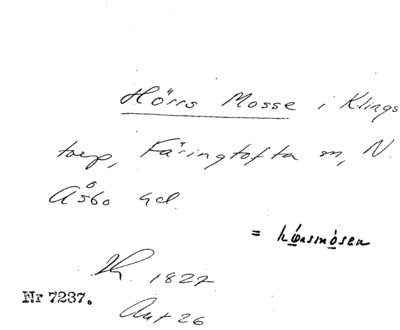 Hörrs Mosse i Klings
torp, Färingtofta sn, N.
Åsbo hd.
= hörsmosen
Lk. 1827
Nr 7237.
Akt 26